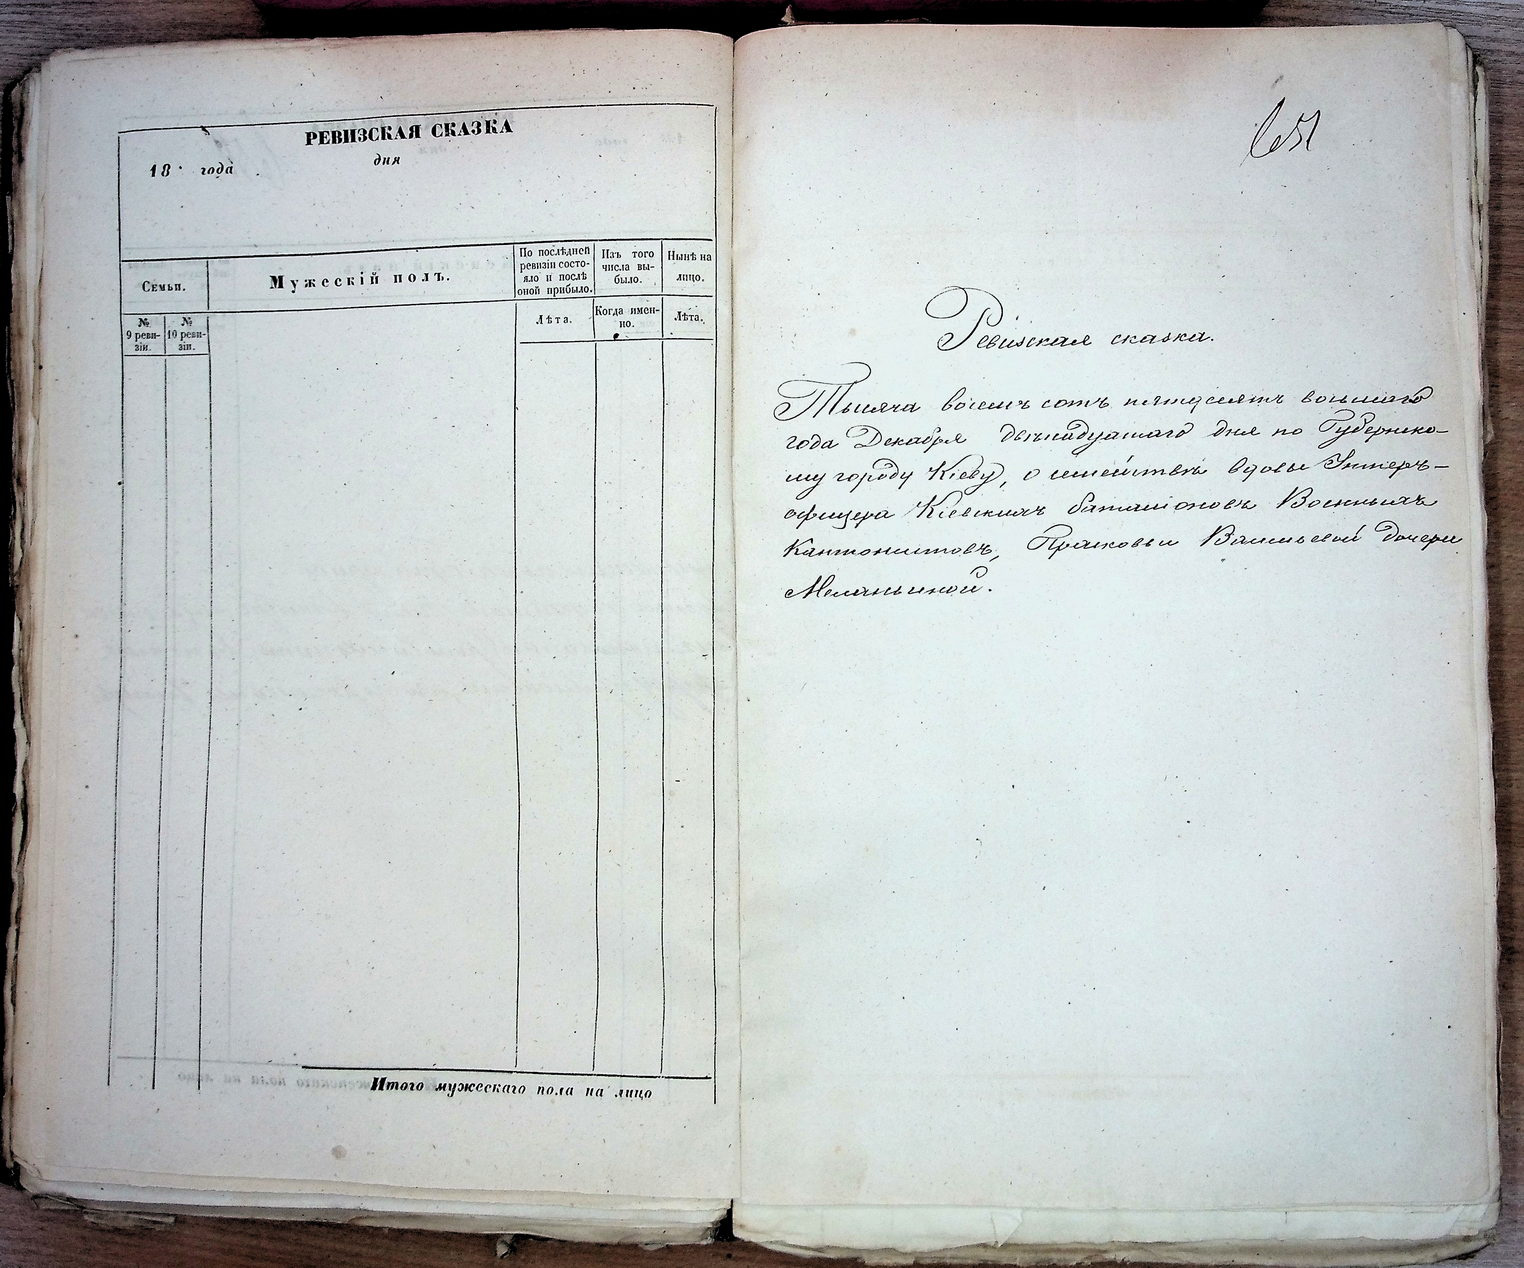 РЕВИЗСКАЯ СКАЗКА
18 года
дня
Семьи.
Мужескій полъ.
По послѣдней ревизіи состояло и послѣ оной прибыло.
Изъ того числа выбыло.
Нынѣ на лицо.
№ 9 ревизіи.
№ 10 ревизіи.
Лѣта.
Когда именно.
Лѣта.
Итого мужескаго пола на лицо
651
Ревизская сказка.
Тысяча восемь сотъ пятдесятъ восьмаго
года Декабря двѣнадцатаго дня по Губернско-
му городу Кіеву, о семействѣ вдовы Унтеръ-
офицера Кіевскихъ баталіоновъ Военныхъ
Кантонистовъ, Прасковьи Васильевой дочери
Меланьиной.